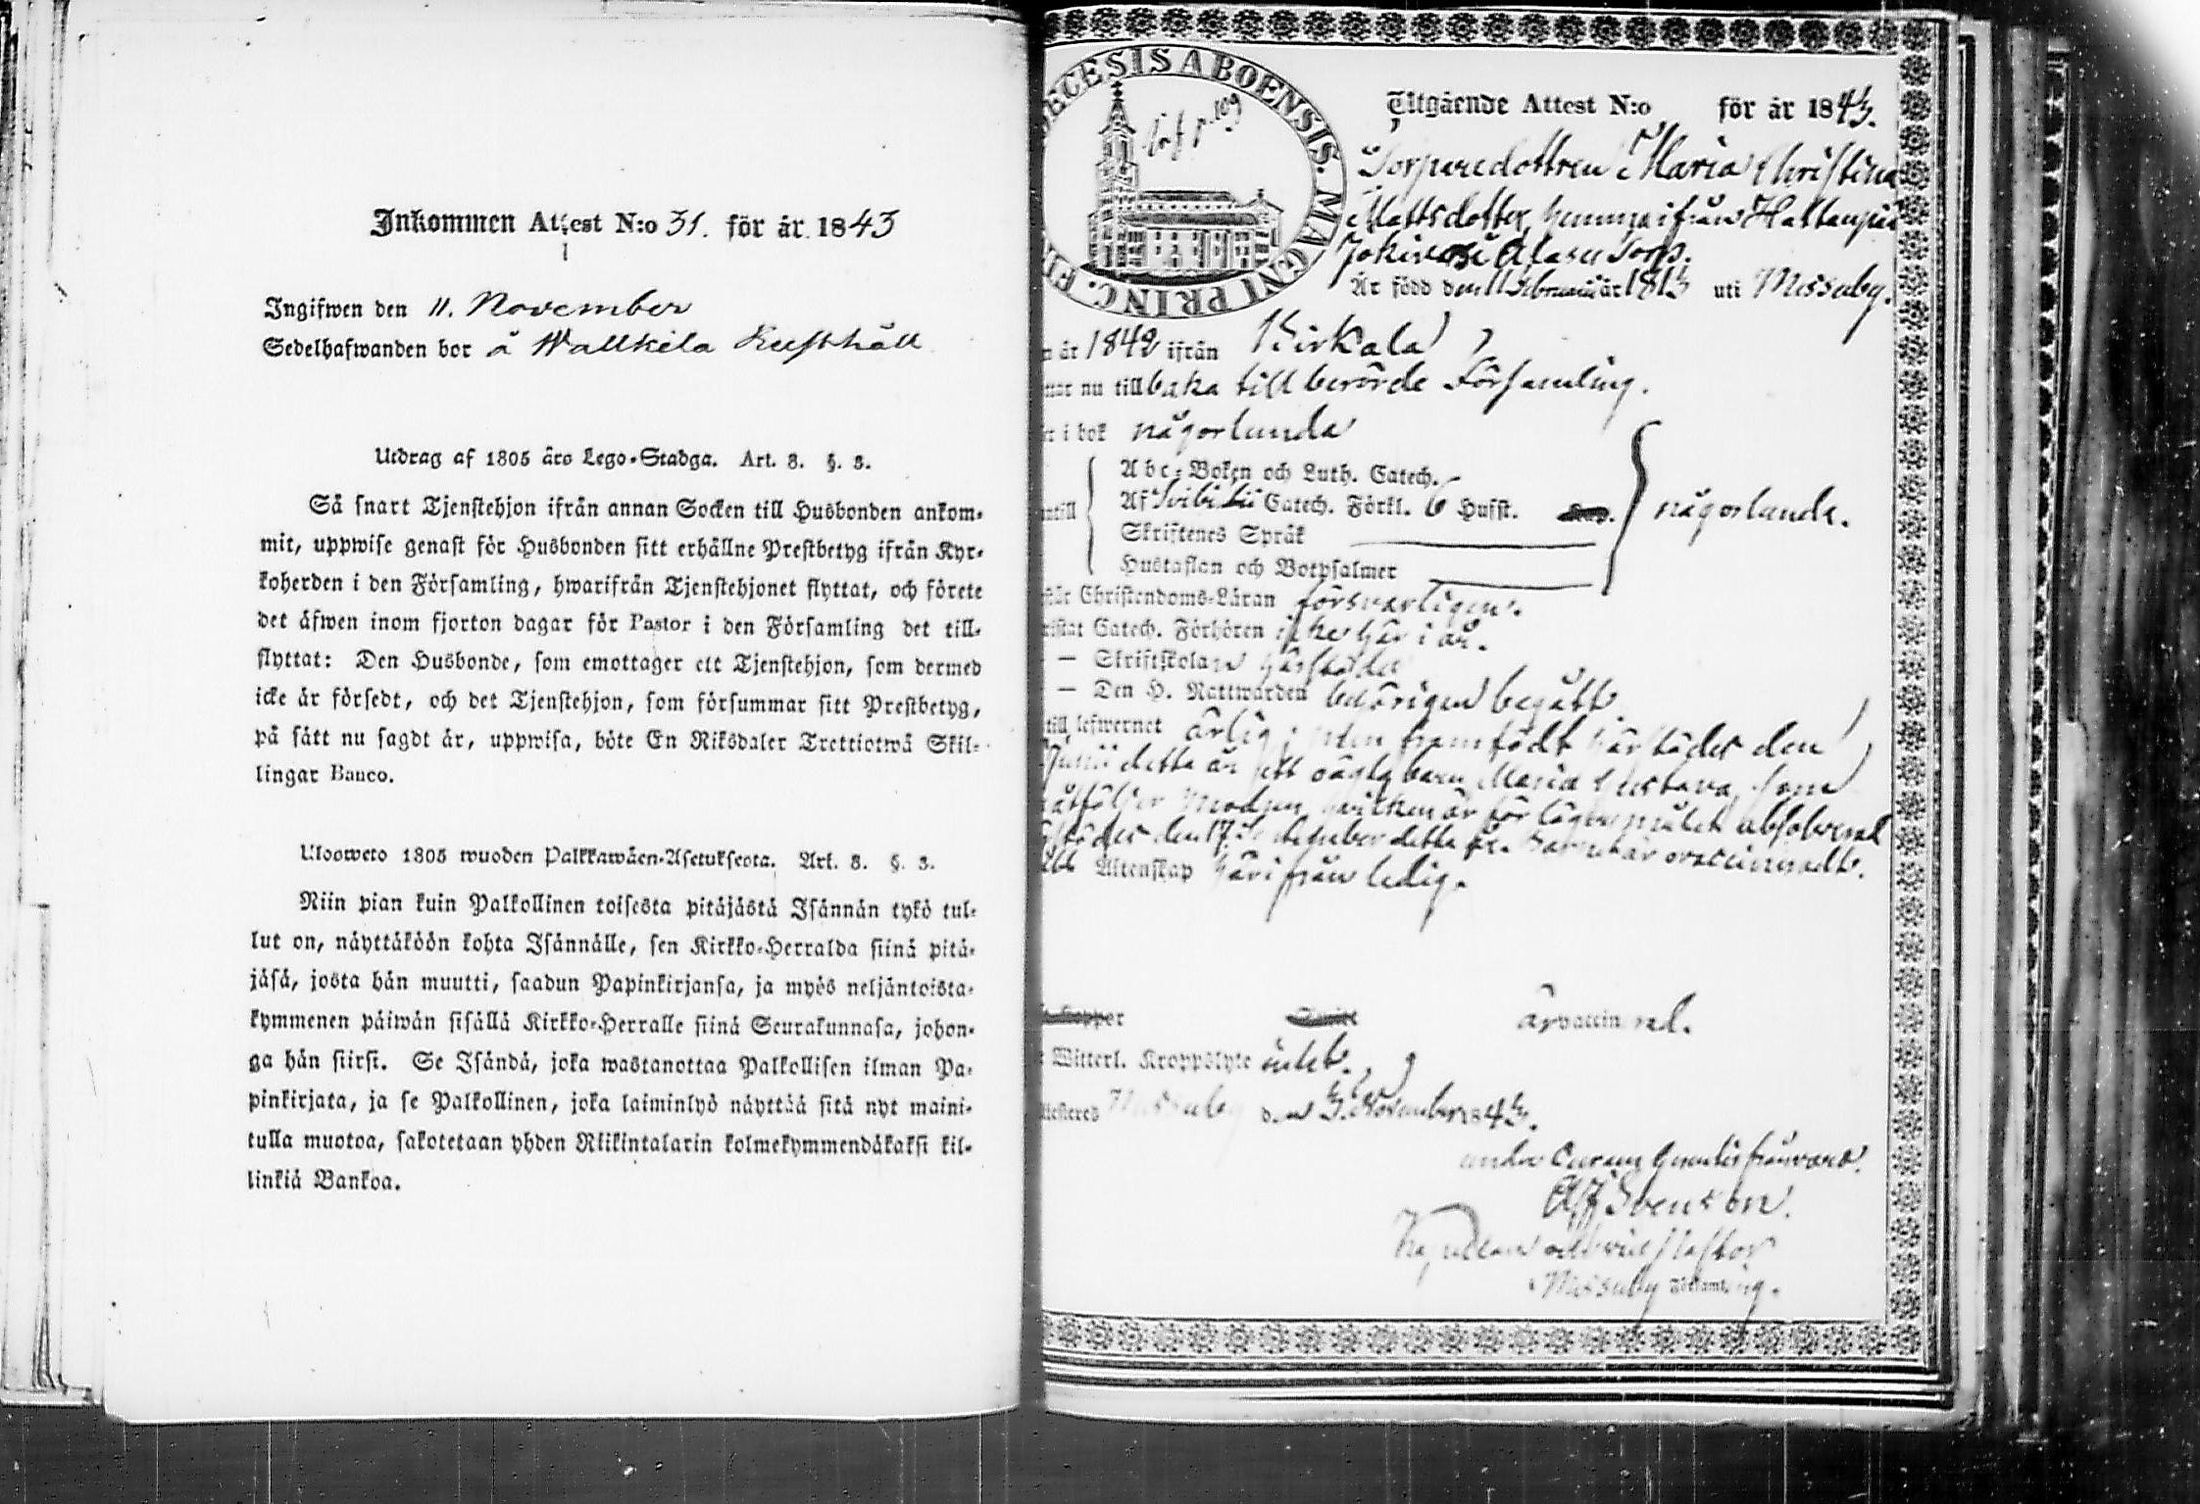 Inkommen Attest N:o 31. för år 1843
Ingifwen den 11. November
Sedelhafwanden bor å Wallkila Rusthåll
Utdrag af 1805 års Lego-Stadga. Art. 3. §. 3.
Så snart Tjenstehjon ifrån annan Socken till Husbonden ankom-
mit, uppwise genast för Husbonden sitt erhållne Prestbetyg ifrån Kyr-
koherden i den Församling, hwarifrån Tjenstehjonet flyttat, och förete
det äfwen inom fjorton dagar för Pastor i den Församling det till-
flyttat: Den Husbonde, som emottager ett Tjenstehjon, som dermed
icke är försedt, och det Tjenstehjon, som försummar sitt Prestbetyg,
på sätt nu sagdt är, uppwisa, böte En Riksdaler Trettiotwå Skil-
lingar Banco.
Ulosweto 1805 wuoden Palkkawäen-Asetuksesta. Art. 3. §. 3.
Niin pian kuin Palkollinen toisesta pitäjästä Isännän tykö tul-
lut on, näyttäköön kohta Isännälle, sen Kirkko-Herralda siinä pitä-
jäsä, josta hän muutti, saadun Papinkirjansa, ja myös neljäntoista-
kymmenen päiwän sisällä Kirkko-Herralle siinä Seurakunnasa, johon-
ga hän siirsi. Se Isändä, joka wastanottaa Palkollisen ilman Pa-
pinkirjata, ja se Palkollinen, joka laiminlyö näyttää sitä nyt maini-
tulla muotoa, sakotetaan yhden Riikintalarin kolmekymmendäkaksi kil-
linkiä Bankoa.
ECESIS ABOENSIS. MAGNI PRINC. FI
109
Utgående Attest N:o för år 1843.
Torparedottren Maria Christina
Mattsdotter, hemma ifrån
Torp.
Är född den 11 Februarii år 1813 uti Messuby.
n år 1842 ifrån Kirkala
nu tillbaka till berörde Församling.
i bok någorlunda
Abc-Boken och Luth. Catech.
Af Svebilii Catech. Förkl. 6 Hufst. någorlunda.
Skriftenes Språk
Hustaflan och Botpsalmer
Christendoms-Läran försvarligen.
Catech. Förhören icke här i år.
— Skriftskolan härstädes
— Den H. Nattwarden behörigen begått.
till lefwernet ärlig; men framfödt härstädes den
Junii detta år sitt oägta barn Maria Gustava, som
åtföljer modren, hvilken är för lägersmålet absolverad
härstädes den 17 detta år. Barnet är ovaccineradt.
Till Äktenskap härifrån ledig.
Koppor är vaccinerad.
Witterl. Kroppslyte intet.
Messuby den 3 November 1843.
under Curam Gerentis frånvaro.
A J Svenson.
Kapellan
i Messuby Församling.